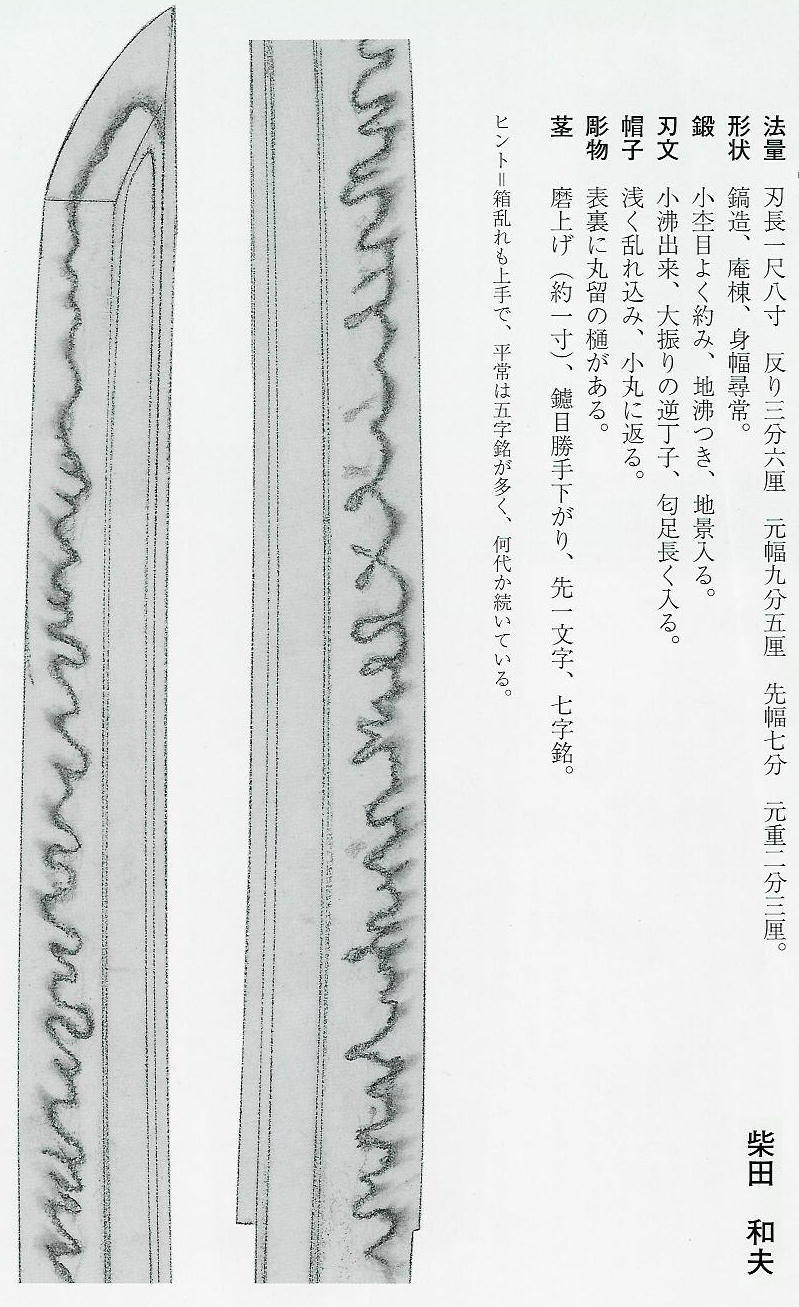 法量　刃長一尺八寸　反り三分六厘　元幅九分五厘　先幅七分　元重二分三厘。
形状　鎬造、庵棟、身幅尋常。
鍛　小杢目よく約み、地沸つき、地景入る。
刃文　小沸出来、大振りの逆丁子、匂足長く入る。
帽子　浅く乱れ込み、小丸に返る。
彫物　表裏に丸留の樋がある。
茎　磨上げ（約一寸）、鑢目勝手下がり、先一文字、七字銘。
ヒント＝箱乱れも上手で、平常は五字銘が多く、何代か続いている。
柴田　和夫